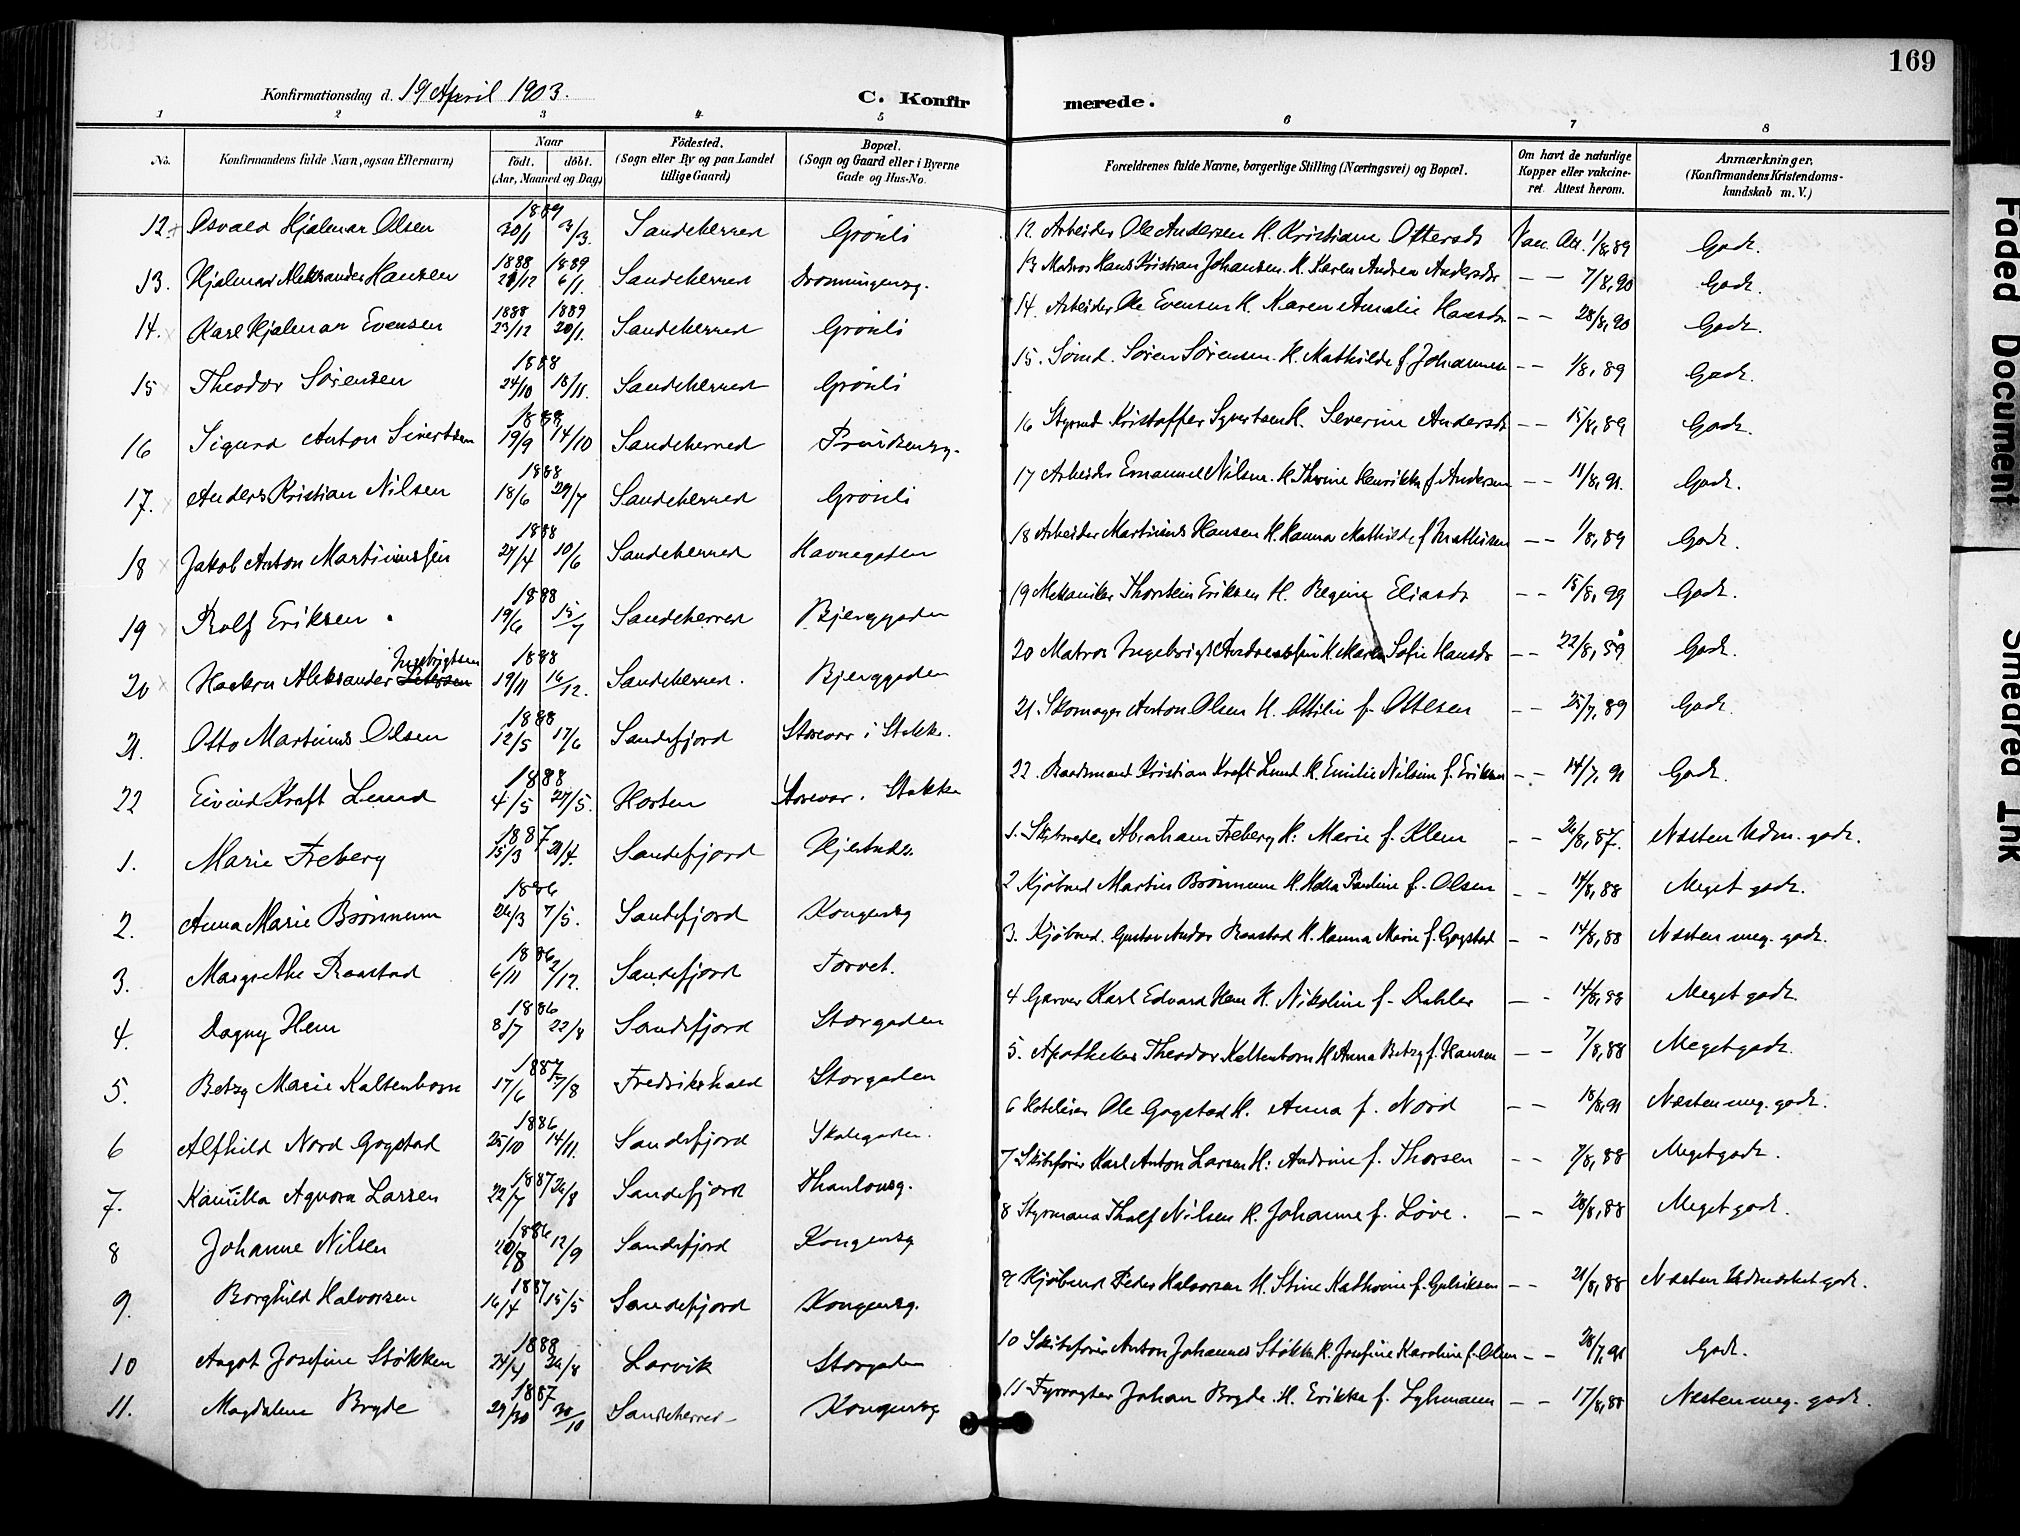 169
Konfirmationsdag d. 19 April 1903.
C. Konfirmerede.
1 2 3 4 5 6 7 8
No.
Konfirmandens fulde Navn, ogsaa Efternavn)
Naar
født. døbt.
(Aar, Maaned og Dag)
Fødested.
(Sogn eller By og paa Landet
tillige Gaard)
Bopæl.
(Sogn og Gaard eller i Byerne
Gade og Hus-No.
Forældrenes fulde Navne, borgerlige Stilling (Næringsvei) og Bopæl.
Om havt de naturlige
Kopper eller vakcine-
ret. Attest herom.
Anmærkninger.
(Konfirmandens Kristendoms-
kundskab m. V.)
12. Osvald Hjalmar Olsen 1889 30/1 3/3. Sandeherred Grønli 12 Arbeider Ole Andersen H. Kristiane Ottersdr Vac. Att. 1/8, 89 Godt.
13. Hjalmar Aleksander Hansen 1888 /12 1889 6/1. Sandeherred Dronningensg. 13 Matros Hans Kristian Johansen. H. Karen Andrea Andersdr — — 7/8, 90 Godt.
14. Karl Hjalmar Evensen 1888 23/12 1889 20/1. Sandeherred Grønli 14. Arbeider Ole Evensen H. Karen Amalie Hansdr — — 28/8, 90 Godt.
15 Theodor Sørensen 1888 24/10 18/11. Sandeherred Grønli 15. Sømd. Søren Sørensen. H. Mathilde f Johannesen — — 1/8, 89 Godt.
16 Sigurd Anton Sivertsen 1888 19/9 14/10 Sandeherred Prindsensg. 16 Styrmd Kristoffer Syvertsen H. Severine Andersdr — — 15/8, 89 Godt.
17. Anders Kristian Nilsen 1888 18/6 29/7 Sandeherred Grønli 17 Arbeider Emanuel Nilsen. H. Thrine Henrikke f Andersen — — 11/8, 91. Godt.
18 Jakob Anton Martiniussen 1888 27/4 10/6 Sandeherred Havnegaden 18 Arbeider Martinius Hansen H. Hanna Mathilde f Mathisen — — 1/8, 89 Godt.
19 Rolf Eriksen. 1888 19/6 15/7 Sandeherred Bjerggaden 19 Mekaniker Thorstein Eriksen H. Regine Eliasdr — — 15/8, 99 Godt.
Ingebrigtsen
20 Haakon Aleksander 1888 19/11 16/12. Sandeherred. Bjerggaden 20 Matros Ingebrigt H. Maren Sofie Hansdr — — 22/8, 89 Godt.
21. Otto Martinius Olsen 1888 12/5 17/6 Sandefjord Storevar i Stokke. 21. Skomager Anton Olsen H. Ottilie f. Ottesen — — 25/7, 89 Godt.
22 Eivind Kraft Lund 1888 4/5 27/5. Horten Storevar i Stokke 22. Baadsmand Kristian Kraft Lund H. Emilie Nilsine f. Eriksen — — 14/7, 91 Godt.
1. Marie Freberg 1887 15/3 21/4. Sandefjord 1. Skibsreder Abraham Freberg H: Marie f. Klem — — 26/8, 87. Næsten Udm. godt.
2. Anna Marie Brønnum 1886 26/3 7/5. Sandefjord Kongensg 2 Kjøbmd Martin Brønnum H. Pauline f. Olsen — — 14/8, 88 Meget godt.
3. Margrethe Raastad 1886 6/11 2/12. Sandefjord Torvet. 3. Kjøbmd. Gustav Andor Raastad H. Hanna Marie f. Gogstad — — 14/8, 88 Næsten meg. godt.
4. Dagny Hem 1886 8/7 22/8 Sandefjord Storgaden 4 Garver Karl Edvard Hem H. Nikoline f. Dahler — — 14/8, 88 Meget godt.
5. Betzy Marie Kaltenborn 1887 17/6 7/8 Fredrikshald Storgaden 5. Apotheker Theodor Kaltenborn H Anna Betzy f. Hansen — — 7/8, 88 Meget godt.
6 Alfhild Nord Gogstad 1886 25/10 14/11. Sandefjord Skolegaden. 6 Hoteleier Ole Gogstad H. Anna f. Nord — — 18/8, 91 Næsten meg. godt.
7. Kamilla Agnora Larsen 1887 22/7 26/8 Sandefjord Thaulowsg. 7 Skibsfører Karl Anton Larsen H: Andrine f. Thorsen — — 7/8, 88 Meget godt.
8 Johanne Nilsen 1886 20/8 12/9 Sandefjord Kongensg 8 Styrmand Thalf Nilsen H. Johanne f. Løve. — — 28/8, 88 Meget godt.
9. Borghild Halvorsen 1887 16/4 15/5 Sandefjord Kongensg. 9 Kjøbmd Peder Halvorsen H. Stine Kathrine f. Gulriksen — — 21/8, 88 Næsten Udmærket godt.
10 Aagot Josefine Støkken 1888 24/4 26/8 Larvik Storgaden 10 Skibsfører Anton Johannes Støkken H. Josefine Karoline f. Olsen — — 28/7, 91 Godt.
11. Magdalene Bryde 1887 29/30 30/10 Sandeherred Kongensg 11 Fyrvogter Johan Bryde. H. Erikke f. Lyhmann — — 17/8, 88 Næsten meg. godt.
Faded Document
Smeared Ink